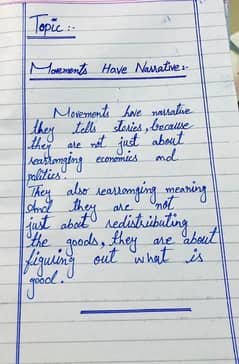 Topic :-
Movements Have Narrative:-
Movements have narrative
they tells stories, because
they are not just about
rearranging economics and
politics.
They also rearranging meaning
And they are not
just about redistributing
the goods, they are about
figuring out what is
good.